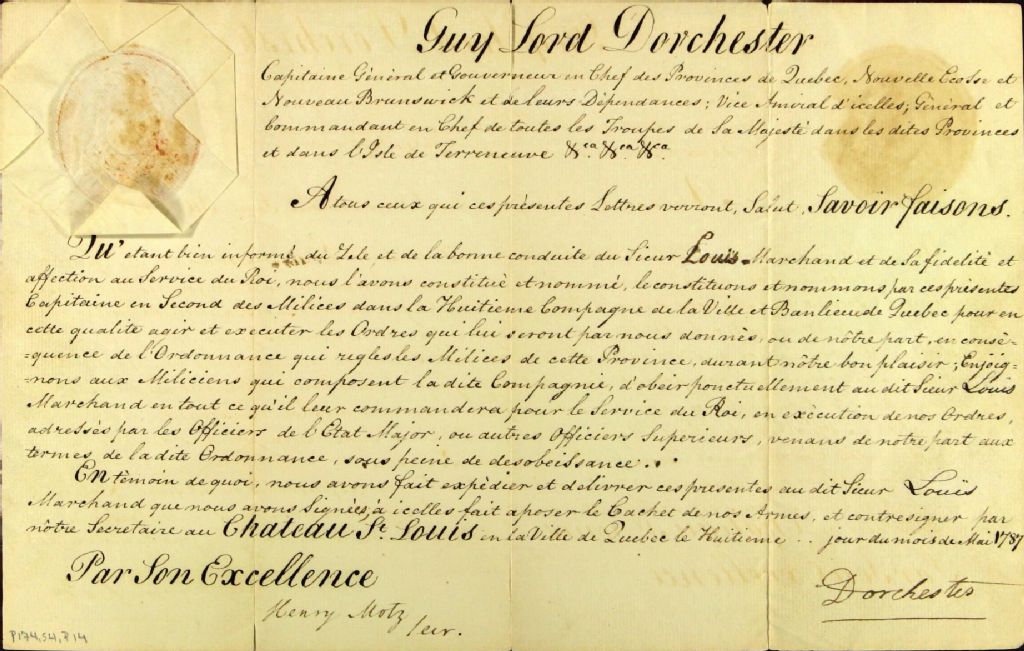 Guy Lord Dorchester
Capitaine Général et Gouverneur en Chef des Provinces de Quebec, Nouvelle Ecosse et
Nouveau Brunswick et de leurs Dépendances; Vice Amiral d'icelles; Général et
Commandant en Chef de toutes les Troupes de Sa Majesté dans les dites Provinces
et dans l'Isle de Terreneuve &ca. &ca. &ca.
A tous ceux qui ces présentes Lettres verront, Salut, Savoir faisons.
Qu'etant bien informé du Zele et de la bonne conduite du Sieur Louïs Marchand et de Sa fidelité et
affection au Service du Roi, nous l'avons constitué et nommé, le constituons et nommons par ces présentes
Capitaine en Second des Milices dans la Huitieme Compagnie de la Ville et Banlieue de Quebec pour en
cette qualité agir et executer les Ordres qui lui seront par nous donnés, ou de nôtre part, en consé-
-quence de l'Ordonnance qui regles les Milices de cette Province, durant nôtre bon plaisir; Enjoig-
-nons aux Miliciens qui composent la dite Compagnie, d'obeir ponctuellement au dit Sieur Louïs
Marchand en tout ce qu'il leur commandera pour le Service du Roi, en exécution de nos Ordres,
adressés par les Officiers de l'Etat Major, ou autres Officiers Superieurs, venans de notre part aux
termes de la dite Ordonnance, sous peine de desobéissance...
En témoin de quoi, nous avons fait expédier et delivrer ces presentes au dit Sieur Louïs
Marchand que nous avons Signées, a icelles fait aposer le Cachet de nos Armes, et contresigner par
nôtre Secretaire au Chateau St. Louis en la Ville de Quebec le Huitieme .. jour du mois de Mai 1787
Par Son Excellence
Dorchester
Henry Motz
Secr.
P174,S4,P14